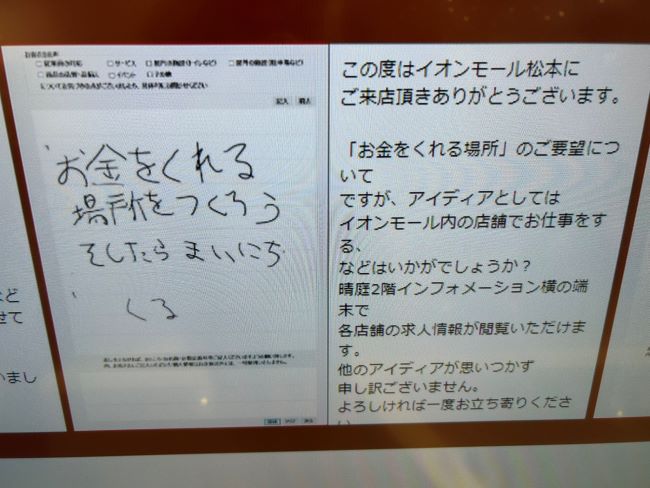 サービス
イベント
記入
消去
お金をくれる
場所をつくろう
そしたらまいにち
くる
この度はイオンモール松本に
ご来店頂きありがとうございます。
「お金をくれる場所」のご要望につ
いて
ですが、アイディアとしては
イオンモール内の店舗でお仕事をす
る、
などはいかがでしょうか？
晴庭2階インフォメーション横の端
末で
各店舗の求人情報が閲覧いただけま
す。
他のアイディアが思いつかず
申し訳ございません。
よろしければ一度お立ち寄りくださ
など
させて
いまし